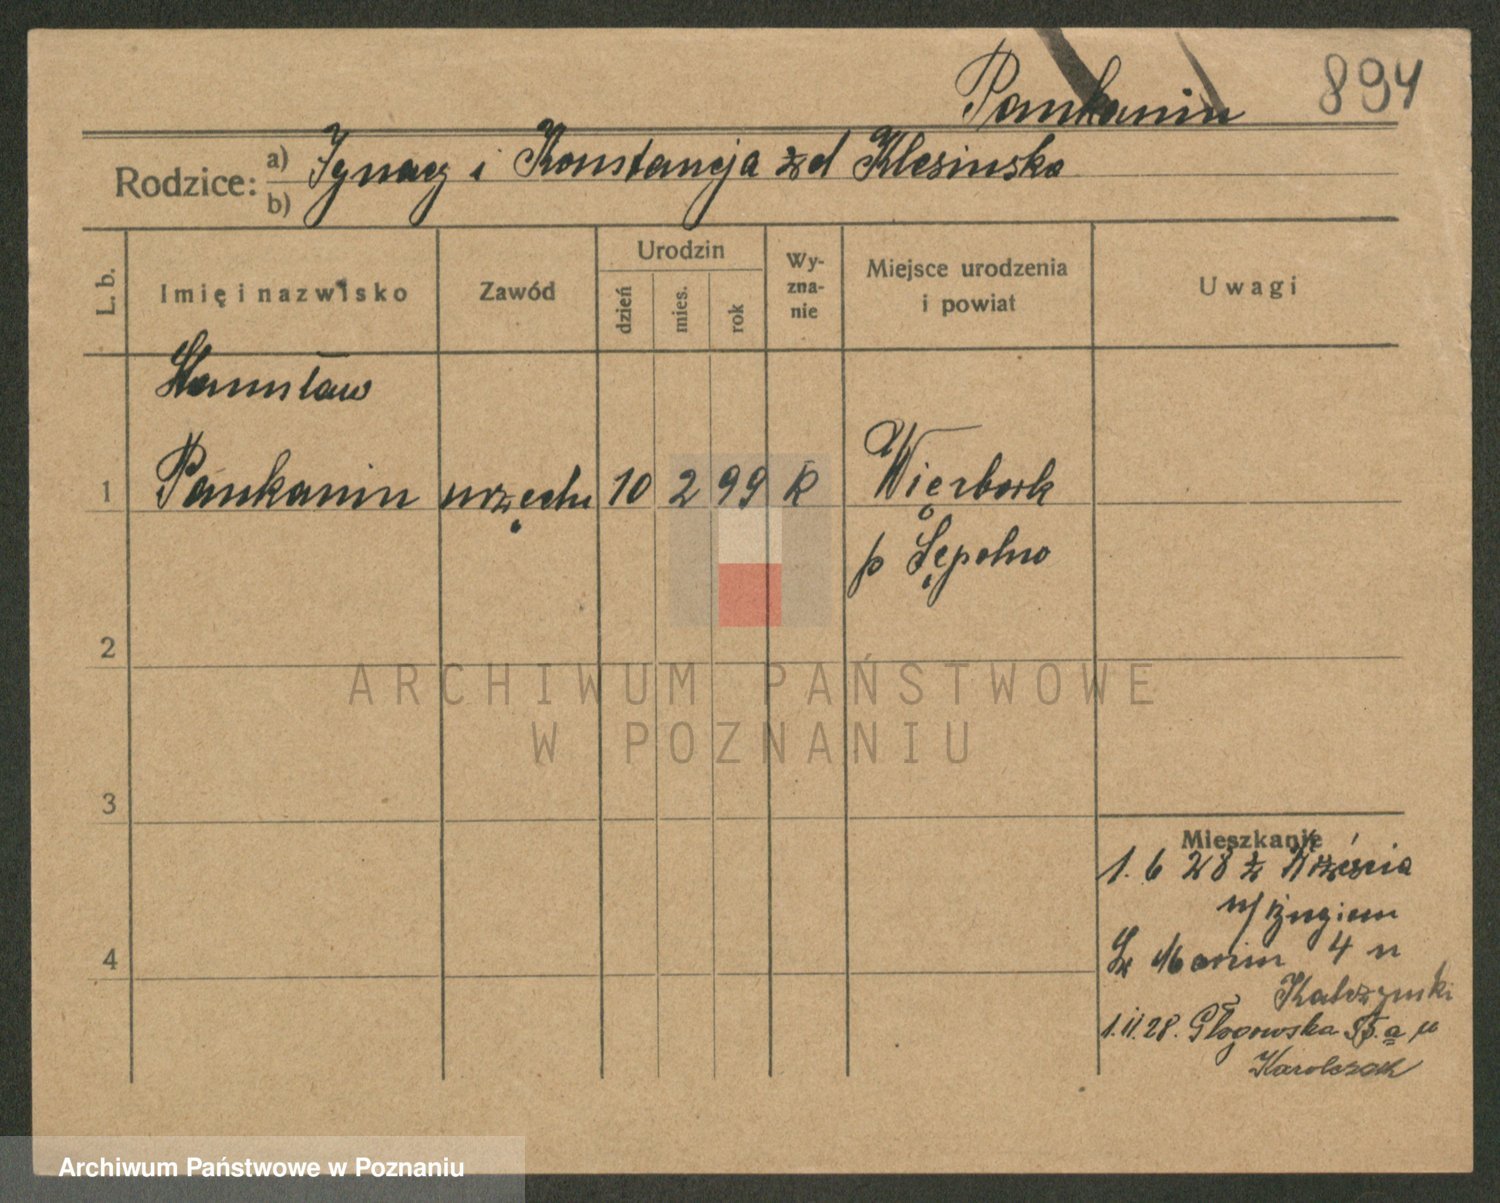 Pankanin 894
Rodzice: a) Ignacy i Konstancja zd Klesinska
b)
L. b.
Imię i nazwisko
Zawód
Urodzin
dzień
mies.
rok
Wy-
zna-
nie
Miejsce urodzenia
i powiat
Uwagi
Stanisław
1 Pankanin urzędn 10 2 99 R Więcbork
p Sępolno
2
3
4
Mieszkanie
1. 6 28 z Września
Św Marcin 4 u
Kalczynski
1.11.28. Głogowska 85.a u
Karolczak
ARCHIWUM PAŃSTWOWE
W POZNANIU
Archiwum Państwowe w Poznaniu